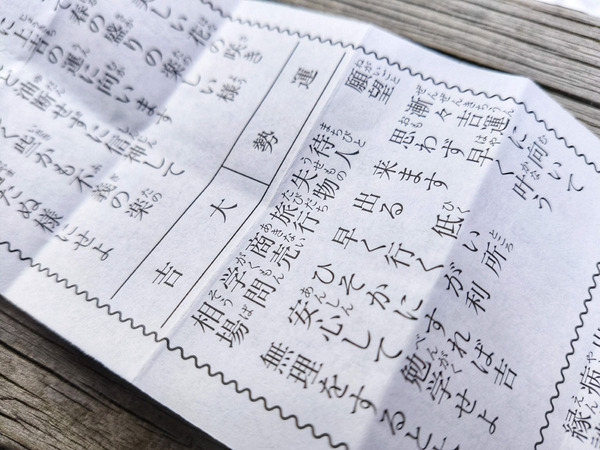 願望 漸々吉運に向いて
思わず早く叶う
待人 来ます
失物 出る 低い所
旅行 早く行くが利
商売 ひそかにすれば吉
学問 安心して勉学せよ
相場 無理をすると
運勢 大吉
美しい花の咲き
春の盛りの楽しい様
に上吉の運に向います
油断せずに信神して
不義の楽
ぬ様にせよ
病
縁